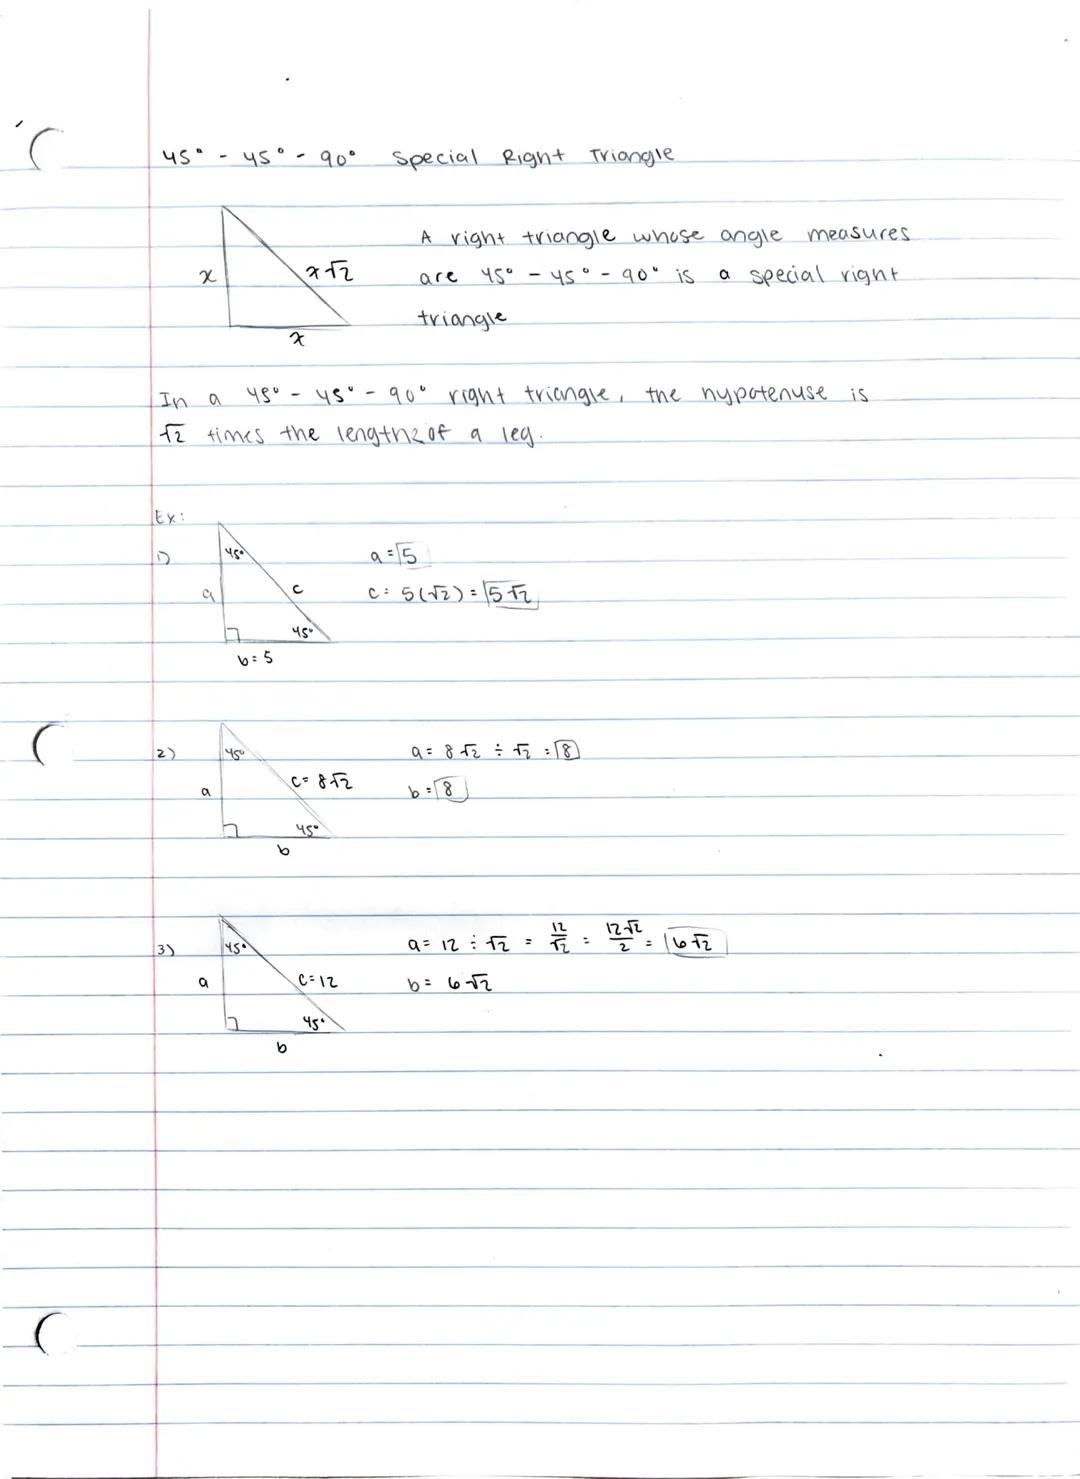 45° - 45° - 90° Special Right Triangle
A right triangle whose angle measures
x x√2 are 45° - 45° - 90° is a special right
triangle
x
In a 45° - 45° - 90° right triangle, the hypotenuse is
√2 times the length of a leg.
Ex:
1) 45° a = 5
a c c: 5(√2) = 5√2
45°
b = 5
2) 45° a = 8√2 ÷ √2 = 8
a c = 8√2 b = 8
45°
b
3) 45° a = 12 ÷ √2 = 12/√2 = 12√2/2 = 6√2
a c = 12 b = 6√2
45°
b